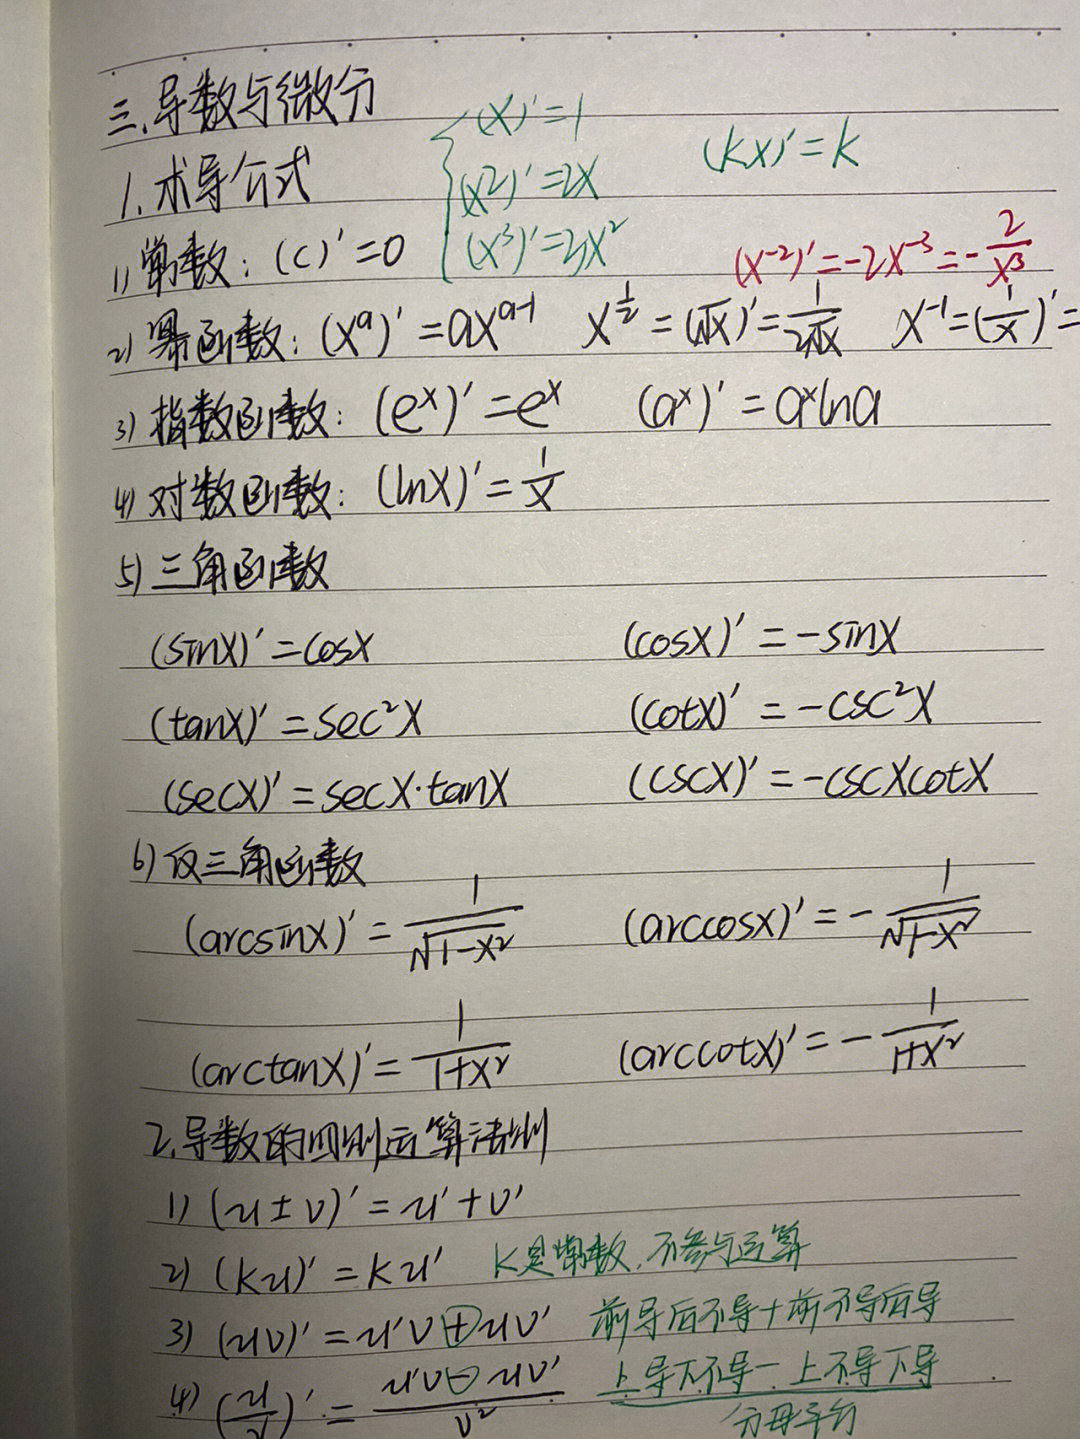 三.导数与微分
(x)'=1
(kx)'=k
1.求导公式
(x2)'=2x
1)常数:(c)'=0
(x³)'=3x²
(x⁻²)'=-2x⁻³=-2/x³
2)幂函数:(xᵃ)'=axᵃ⁻¹ x^½=(√x)'=1/2√x x⁻¹=(1/x)'=
3)指数函数:(eˣ)'=eˣ (aˣ)'=aˣlna
4)对数函数:(lnx)'=1/x
5)三角函数
(sinx)'=cosx (cosx)'=-sinx
(tanx)'=sec²x (cotx)'=-csc²x
(secx)'=secx·tanx (cscx)'=-cscxcotx
6)反三角函数
(arcsinx)'=1/√1-x² (arccosx)'=-1/√1-x²
(arctanx)'=1/1+x² (arccotx)'=-1/1+x²
2.导数的四则运算法则
1)(u±v)'=u'+v'
2)(ku)'=ku' k是常数,不参与运算
3)(uv)'=u'v⊕uv' 前导后不导+前不导后导
4)(u/v)'=u'v⊖uv'/v² 上导下不导-上不导下导
分母平方